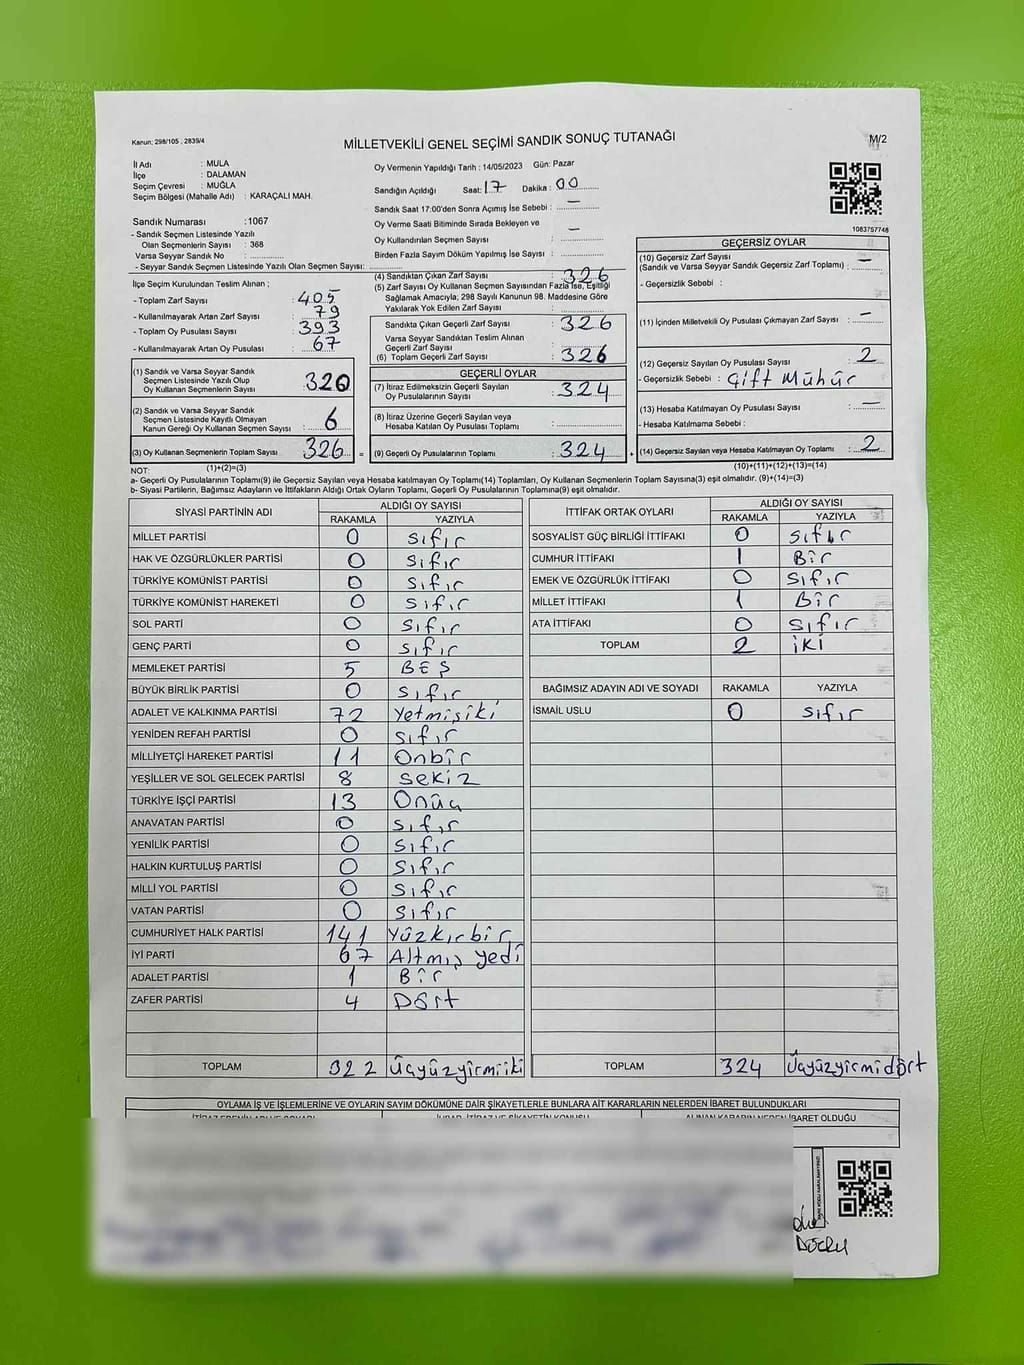 Kanun: 298/105 , 2839/4
MİLLETVEKİLİ GENEL SEÇİMİ SANDIK SONUÇ TUTANAĞI
M/2
İl Adı : MULA
İlçe : DALAMAN
Seçim Çevresi : MUĞLA
Seçim Bölgesi (Mahalle Adı) : KARAÇALI MAH.
Sandık Numarası : 1067
- Sandık Seçmen Listesinde Yazılı
Olan Seçmenlerin Sayısı : 368
Varsa Seyyar Sandık No :
- Seyyar Sandık Seçmen Listesinde Yazılı Olan Seçmen Sayısı:
İlçe Seçim Kurulundan Teslim Alınan ;
- Toplam Zarf Sayısı : 405
- Kullanılmayarak Artan Zarf Sayısı : 79
- Toplam Oy Pusulası Sayısı : 393
- Kullanılmayarak Artan Oy Pusulası : 67
(1) Sandık ve Varsa Seyyar Sandık
Seçmen Listesinde Yazılı Olup
Oy Kullanan Seçmenlerin Sayısı 320
(2) Sandık ve Varsa Seyyar Sandık
Seçmen Listesinde Kayıtlı Olmayan
Kanun Gereği Oy Kullanan Seçmen Sayısı : 6
(3) Oy Kullanan Seçmenlerin Toplam Sayısı 326
(1)+(2)=(3)
Oy Vermenin Yapıldığı Tarih : 14/05/2023 Gün: Pazar
Sandığın Açıldığı Saat: 17 Dakika : 00
Sandık Saat 17:00'den Sonra Açımış İse Sebebi : —
Oy Verme Saati Bitiminde Sırada Bekleyen ve
Oy Kullandırılan Seçmen Sayısı : —
Birden Fazla Sayım Döküm Yapılmış İse Sayısı :
(4) Sandıktan Çıkan Zarf Sayısı : 326
(5) Zarf Sayısı Oy Kullanan Seçmen Sayısından Fazla İse, Eşitliği
Sağlamak Amacıyla; 298 Sayılı Kanunun 98. Maddesine Göre
Yakılarak Yok Edilen Zarf Sayısı :
Sandıkta Çıkan Geçerli Zarf Sayısı : 326
Varsa Seyyar Sandıktan Teslim Alınan
Geçerli Zarf Sayısı :
(6) Toplam Geçerli Zarf Sayısı : 326
GEÇERLİ OYLAR
(7) İtiraz Edilmeksizin Geçerli Sayılan
Oy Pusulalarının Sayısı : 324
(8) İtiraz Üzerine Geçerli Sayılan veya
Hesaba Katılan Oy Pusulası Toplamı :
= (9) Geçerli Oy Pusulalarının Toplamı : 324
1083757748
GEÇERSİZ OYLAR
(10) Geçersiz Zarf Sayısı —
(Sandık ve Varsa Seyyar Sandık Geçersiz Zarf Toplamı) :
- Geçersizlik Sebebi :
(11) İçinden Milletvekili Oy Pusulası Çıkmayan Zarf Sayısı : —
(12) Geçersiz Sayılan Oy Pusulası Sayısı : 2
- Geçersizlik Sebebi : Çift Mühür
(13) Hesaba Katılmayan Oy Pusulası Sayısı : —
- Hesaba Katılmama Sebebi :
+ (14) Geçersiz Sayılan veya Hesaba Katılmayan Oy Toplamı : 2
(10)+(11)+(12)+(13)=(14)
NOT:
a- Geçerli Oy Pusulalarının Toplamı(9) ile Geçersiz Sayılan veya Hesaba katılmayan Oy Toplamı(14) Toplamları, Oy Kullanan Seçmenlerin Toplam Sayısına(3) eşit olmalıdır. (9)+(14)=(3)
b- Siyasi Partilerin, Bağımsız Adayların ve İttifakların Aldığı Ortak Oyların Toplamı, Geçerli Oy Pusulalarının Toplamına(9) eşit olmalıdır.
SİYASİ PARTİNİN ADI ALDIĞI OY SAYISI
RAKAMLA YAZIYLA
MİLLET PARTİSİ 0 sıfır
HAK VE ÖZGÜRLÜKLER PARTİSİ 0 sıfır
TÜRKİYE KOMÜNİST PARTİSİ 0 sıfır
TÜRKİYE KOMÜNİST HAREKETİ 0 sıfır
SOL PARTİ 0 sıfır
GENÇ PARTİ 0 sıfır
MEMLEKET PARTİSİ 5 BEŞ
BÜYÜK BİRLİK PARTİSİ 0 sıfır
ADALET VE KALKINMA PARTİSİ 72 Yetmişiki
YENİDEN REFAH PARTİSİ 0 sıfır
MİLLİYETÇİ HAREKET PARTİSİ 11 Onbir
YEŞİLLER VE SOL GELECEK PARTİSİ 8 sekiz
TÜRKİYE İŞÇİ PARTİSİ 13 Onüç
ANAVATAN PARTİSİ 0 sıfır
YENİLİK PARTİSİ 0 sıfır
HALKIN KURTULUŞ PARTİSİ 0 sıfır
MİLLİ YOL PARTİSİ 0 sıfır
VATAN PARTİSİ 0 sıfır
CUMHURİYET HALK PARTİSİ 141 Yüzkırbir
İYİ PARTİ 67 Altmış yedi
ADALET PARTİSİ 1 Bir
ZAFER PARTİSİ 4 Dört
TOPLAM 322 Üçyüzyirmiiki
İTTİFAK ORTAK OYLARI ALDIĞI OY SAYISI
RAKAMLA YAZIYLA
SOSYALİST GÜÇ BİRLİĞİ İTTİFAKI 0 sıfır
CUMHUR İTTİFAKI 1 Bir
EMEK VE ÖZGÜRLÜK İTTİFAKI 0 sıfır
MİLLET İTTİFAKI 1 Bir
ATA İTTİFAKI 0 sıfır
TOPLAM 2 iki
BAĞIMSIZ ADAYIN ADI VE SOYADI RAKAMLA YAZIYLA
İSMAİL USLU 0 sıfır
TOPLAM 324 Üçyüzyirmidört
OYLAMA İŞ VE İŞLEMLERİNE VE OYLARIN SAYIM DÖKÜMÜNE DAİR ŞİKAYETLERLE BUNLARA AİT KARARLARIN NELERDEN İBARET BULUNDUKLARI
İTİRAZ EDENİN ADI VE SOYADI İHBAR, İTİRAZ VE ŞİKAYETİN KONUSU ALINAN KARARIN NEDEN İBARET OLDUĞU